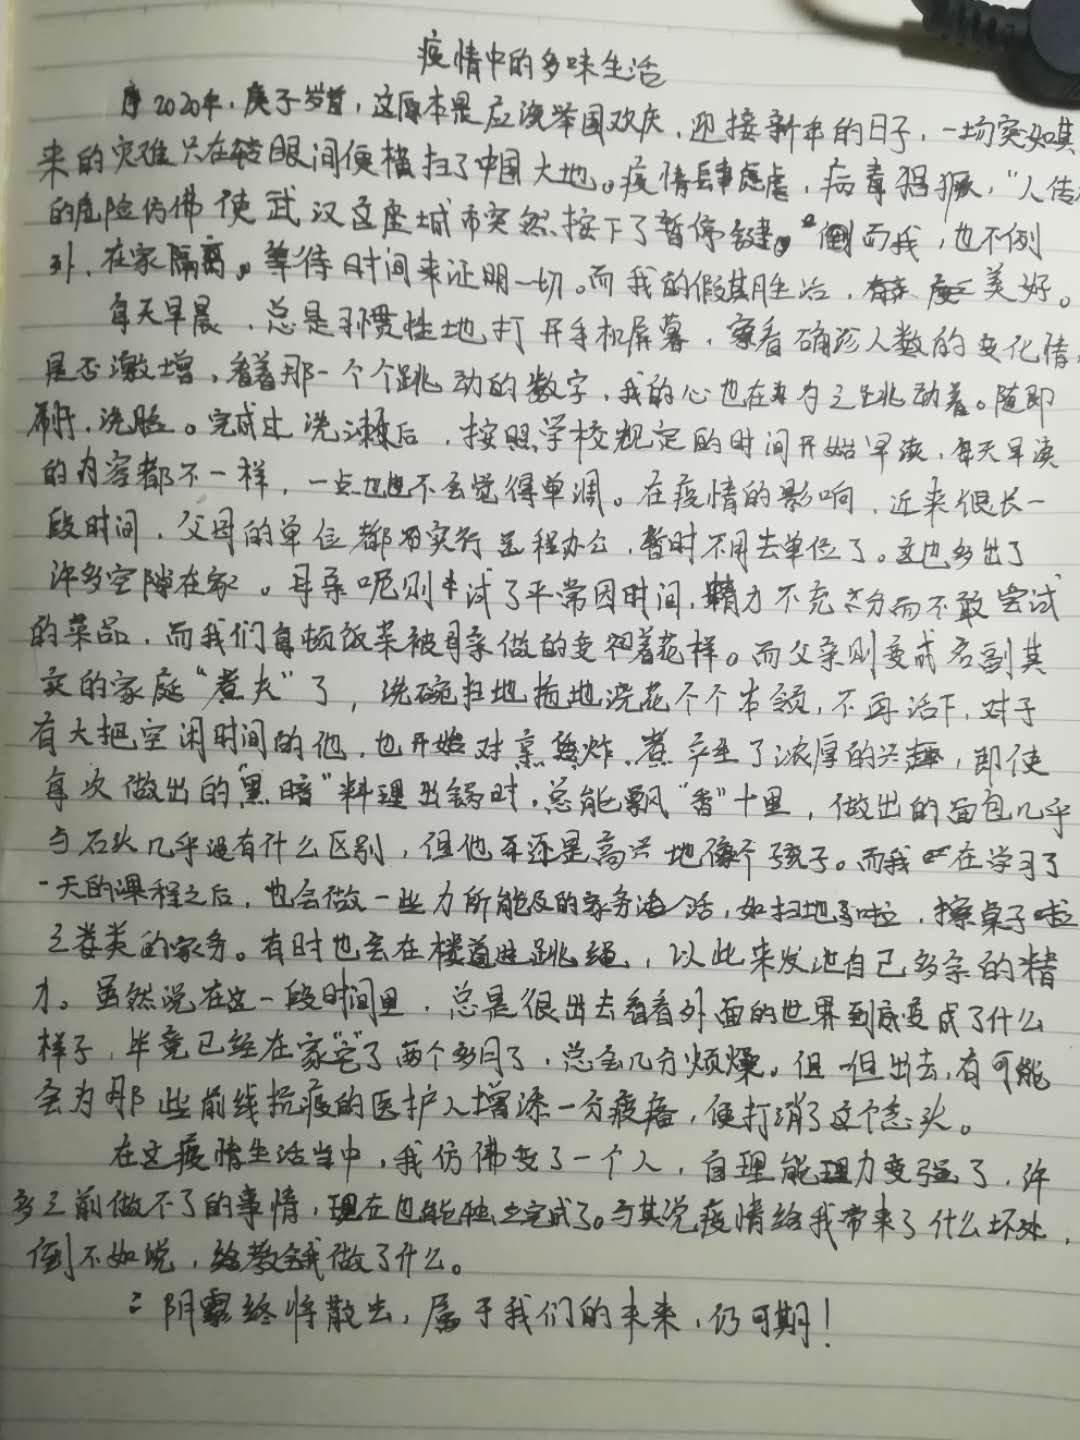 疫情中的多味生活
2020年，庚子岁首，这原本是应该举国欢庆，迎接新年的日子，一场突如其
来的灾难只在转眼间便横扫了中国大地。疫情肆虐，病毒猖獗，“人传人
的危险仿佛使武汉这座城市突然按下了暂停键。而我，也不例
外，在家隔离。等待时间来证明一切。而我的假期生活，美好。
每天早晨，总是习惯性地打开手机屏幕，察看确诊人数的变化情
是否激增，看着那一个个跳动的数字，我的心也在为之跳动着。随即
刷牙，洗脸。完成过洗漱后，按照学校规定的时间开始早读，每天早读
的内容都不一样，一点也不会觉得单调。在疫情的影响，近来很长一
段时间，父母的单位都实行远程办公，暂时不用去单位了。这也多出了
许多空隙在家。母亲呢则试了平常因时间，精力不充分而不敢尝试
的菜品，而我们每顿饭菜被母亲做的变着花样。而父亲则变成名副其
实的家庭“煮夫”了，洗碗扫地拖地浇花个个本领，不再话下，对于
有大把空闲时间的他，也开始对烹炸煮产生了浓厚的兴趣，即使
每次做出的“黑暗”料理出锅时，总能飘“香”十里，做出的面包几乎
与石头几乎没有什么区别，但他还是高兴地像个孩子。而我在学习了
一天的课程之后，也会做一些力所能及的家务活，如扫地啦，擦桌子啦
之类的家务。有时也会在楼道里跳绳，以此来发泄自己多余的精
力。虽然说在这一段时间里，总是很出去看看外面的世界到底变成了什么
样子，毕竟已经在家“宅”了两个多月了，总会几分烦燥。但一但出去，有可能
会为那些前线抗疫的医护人增添一分疲惫，便打消了这个念头。
在这疫情生活当中，我仿佛变了一个人，自理能力变强了，许
多之前做不了的事情，现在也能独立完成了。与其说疫情给我带来了什么坏处，
倒不如说，教会我做了什么。
阴霾终将散去，属于我们的未来，仍可期！